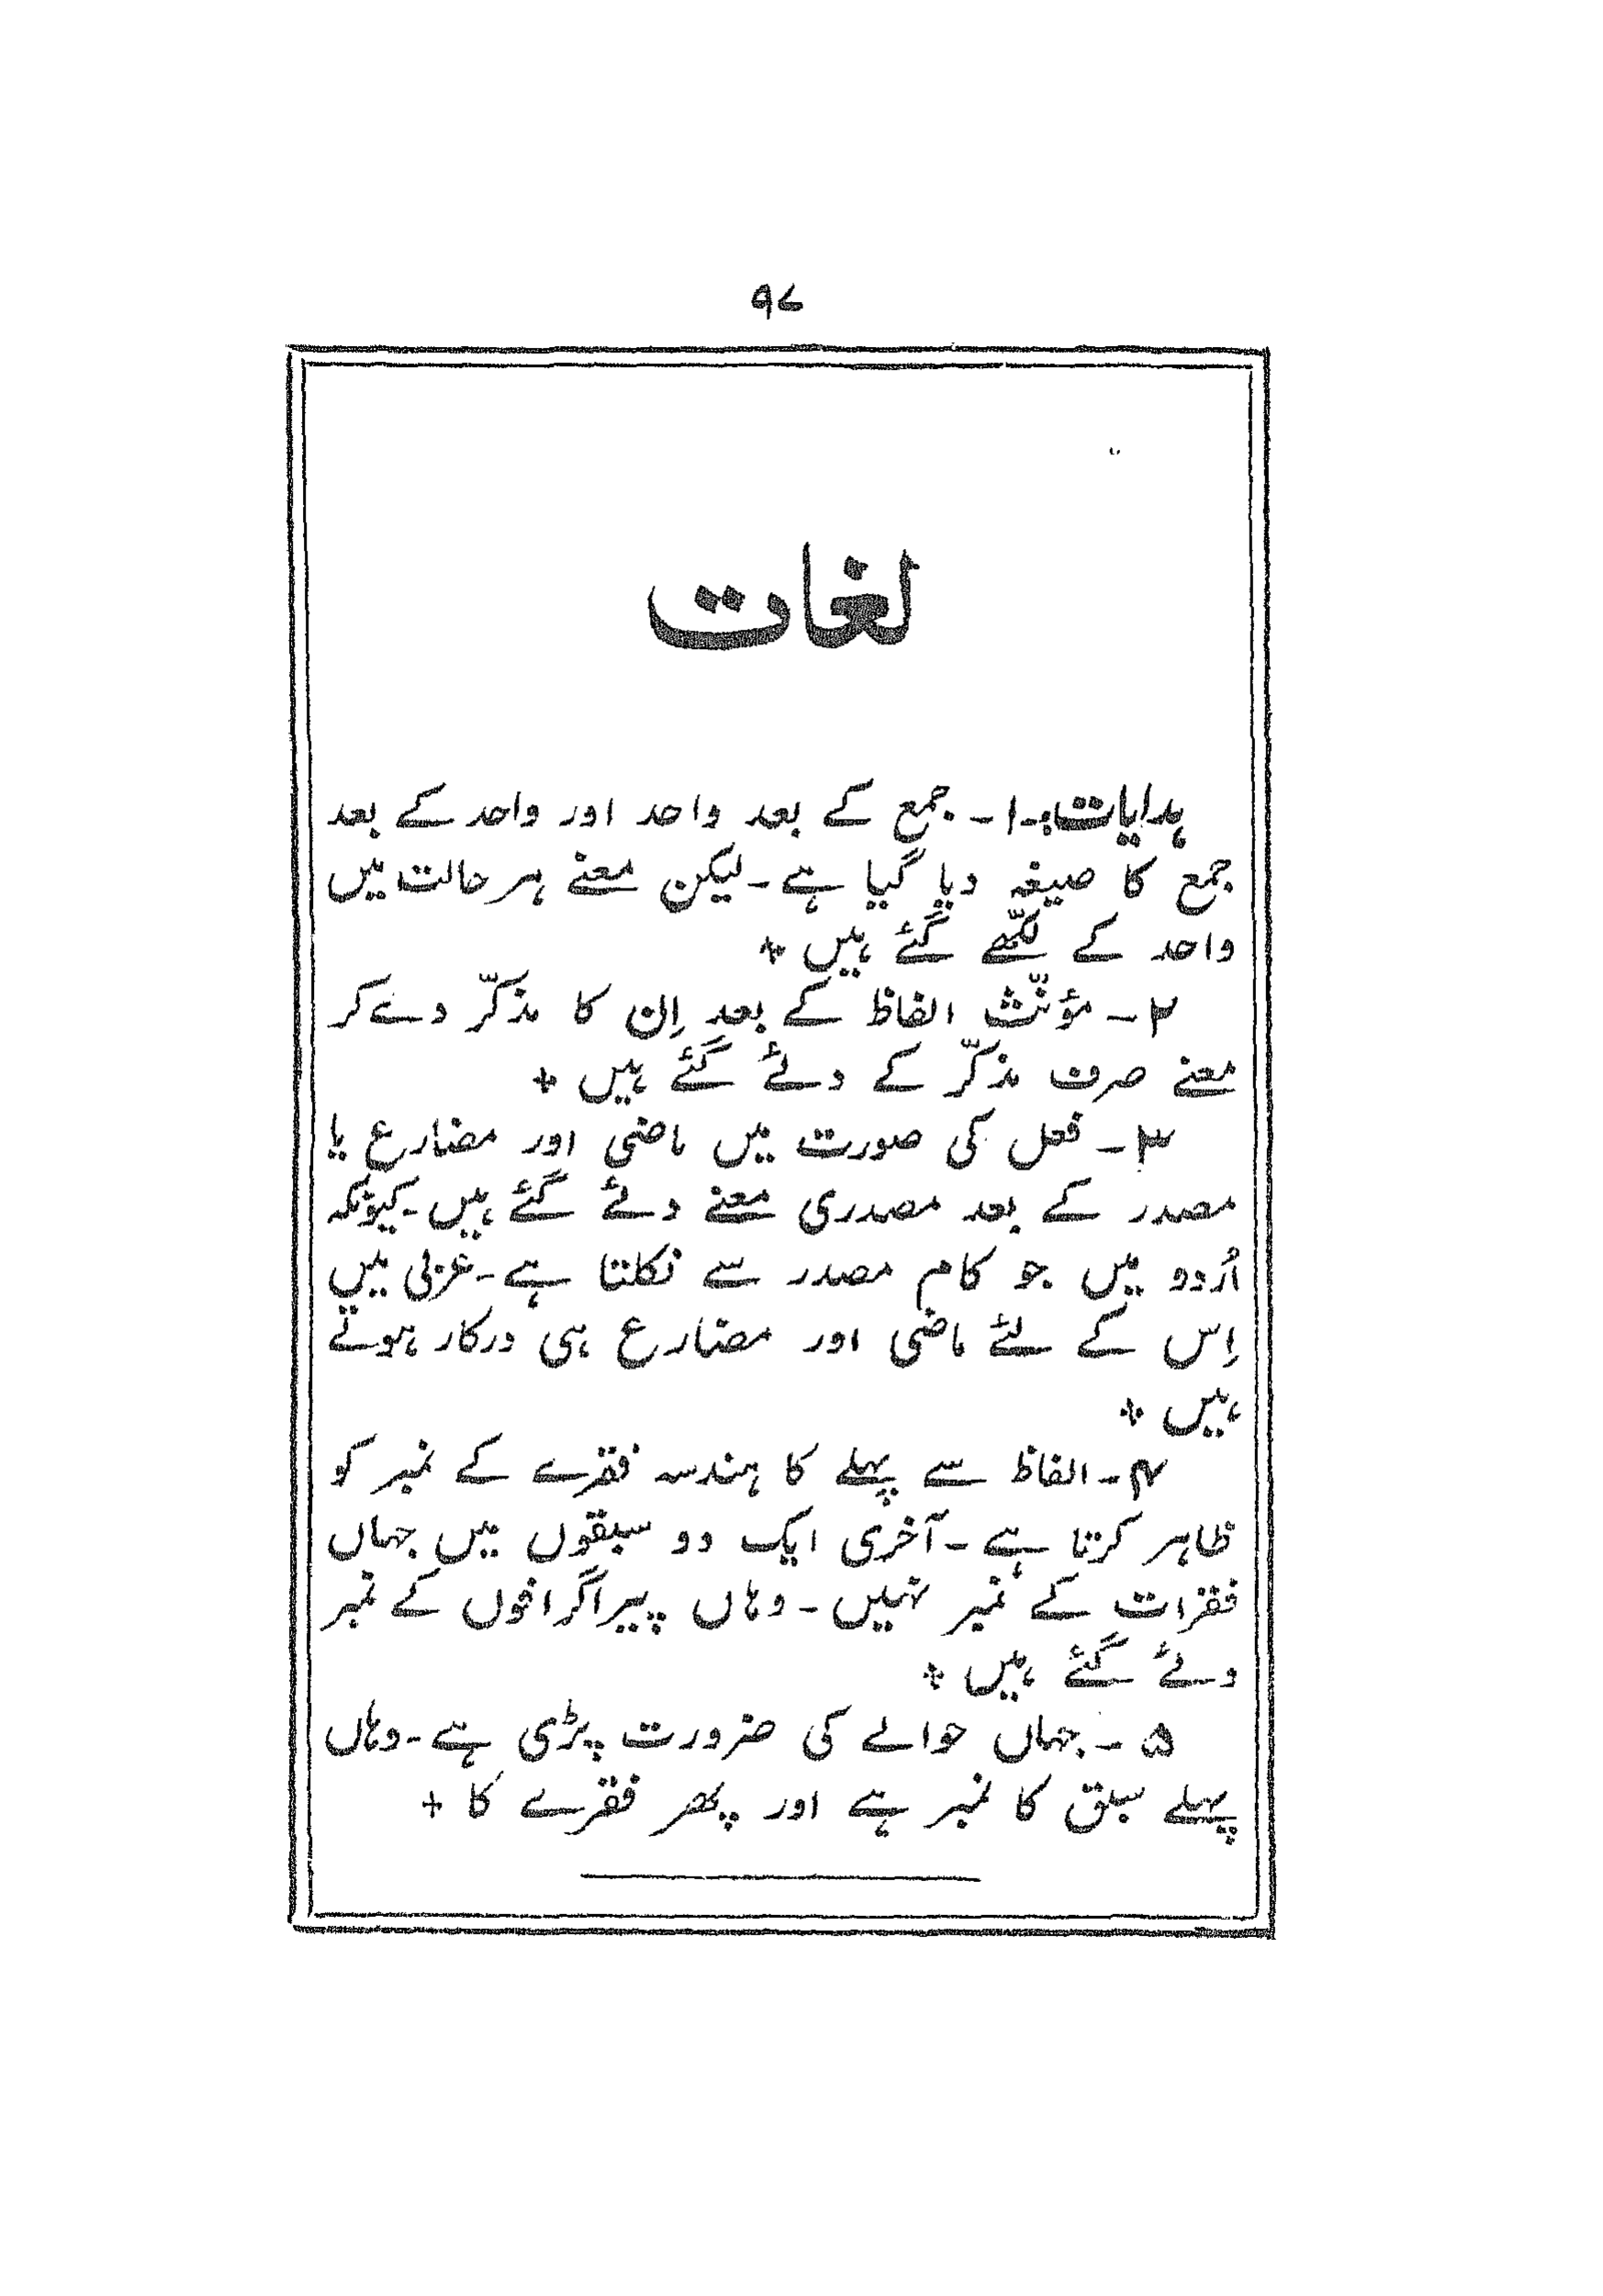 ۹۷
لغات
ہدایات:۔ ۱۔ جمع کے بعد واحد اور واحد کے بعد
جمع کا صیغہ دیا گیا ہے۔ لیکن معنے ہر حالت میں
واحد کے لکھّے گئے ہیں +
۲۔ مؤنّث الفاظ کے بعد اِن کا مذکّر دے کر
معنے صرف مذکّر کے دئے گئے ہیں +
۳۔ فعل کی صورت میں ماضی اور مضارع یا
مصدر کے بعد مصدری معنے دئے گئے ہیں۔ کیونکہ
اُردو میں جو کام مصدر سے نکلتا ہے۔ عربی میں
اِس کے لئے ماضی اور مضارع ہی درکار ہوتے
ہیں +
۴۔ الفاظ سے پہلے کا ہندسہ فقرے کے نمبر کو
ظاہر کرتا ہے۔ آخری ایک دو سبقوں میں جہاں
فقرات کے نمبر نہیں۔ وہاں پیراگرافوں کے نمبر
دئے گئے ہیں +
۵۔ جہاں حوالے کی ضرورت پڑی ہے۔ وہاں
پہلے سبق کا نمبر ہے اور پھر فقرے کا +